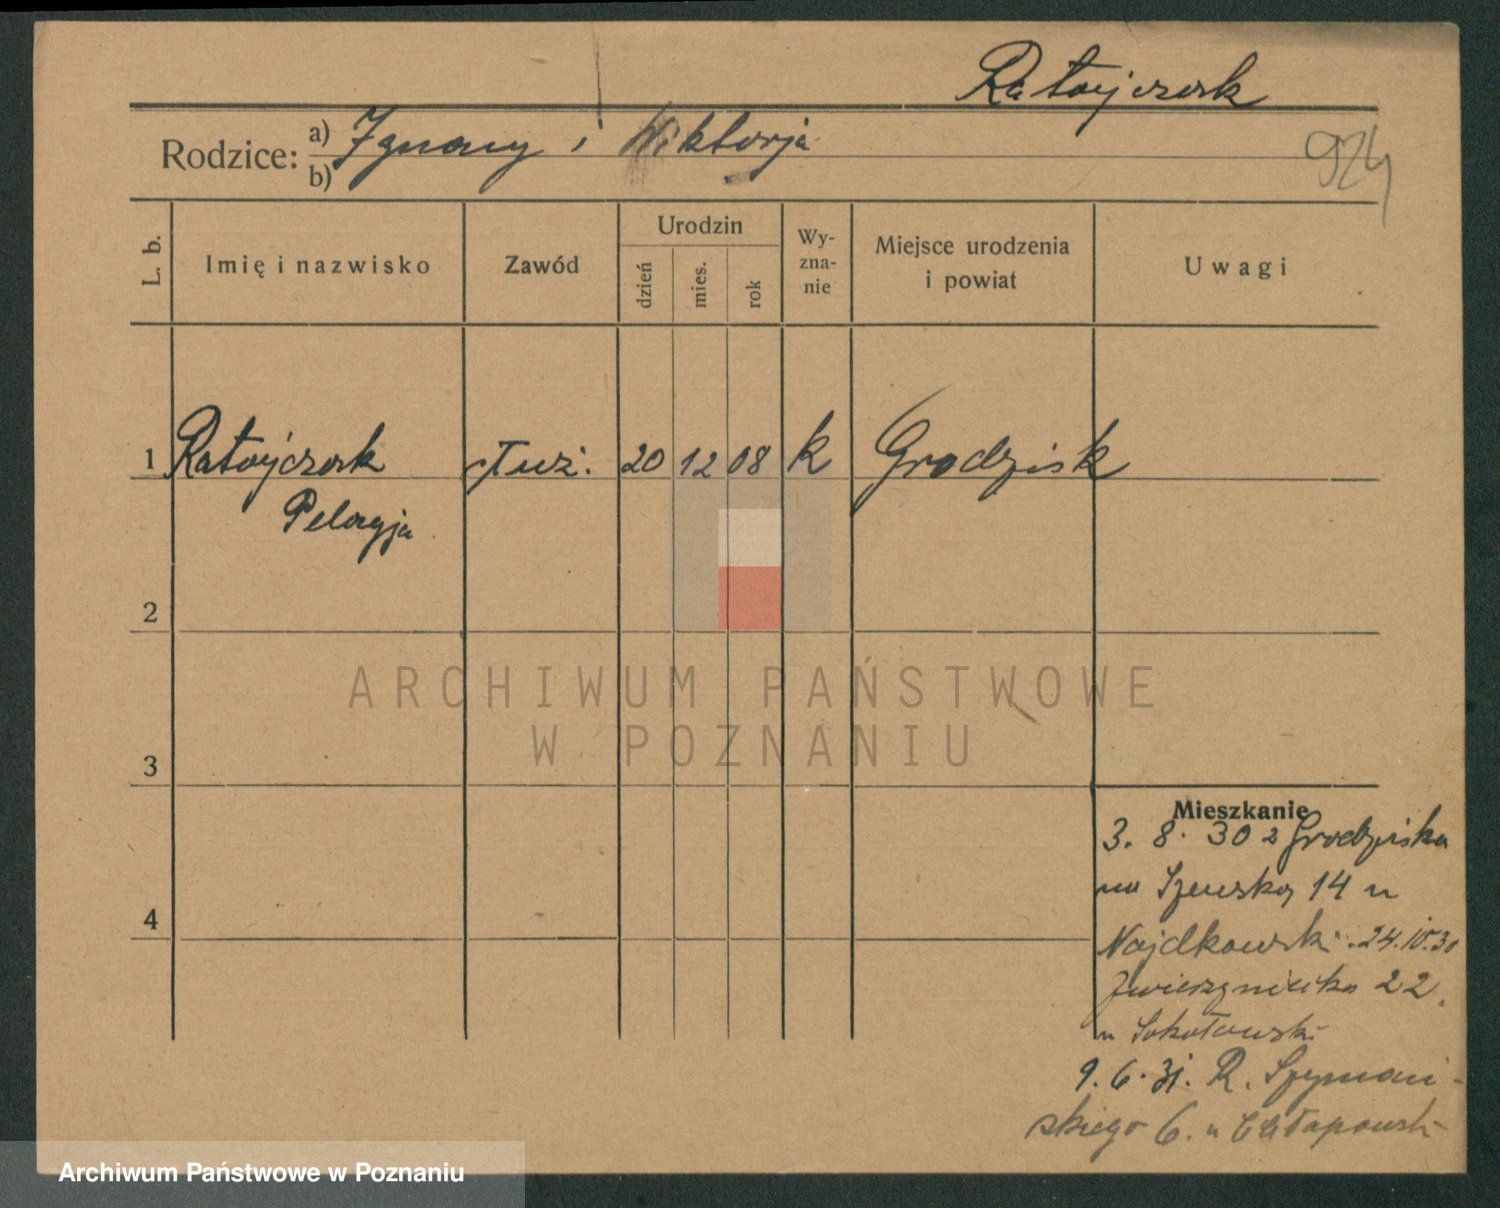 Ratajczak
Rodzice: a) Ignacy i Wiktorja
b)
924
L. b. Imię i nazwisko Zawód Urodzin dzień mies. rok Wy-zna-nie Miejsce urodzenia i powiat Uwagi
1 Ratajczak służ. 20 12 08 k Grodzisk
Pelagja
2
ARCHIWUM PAŃSTWOWE
W POZNANIU
3
Mieszkanie
3. 8. 30 z Grodziska
na Szewską 14 u
4
24.10.30
Zwierzyniecka 22.
u Sokołowski
9. 6. 31. R. Szymań-
skiego 6. u
Archiwum Państwowe w Poznaniu